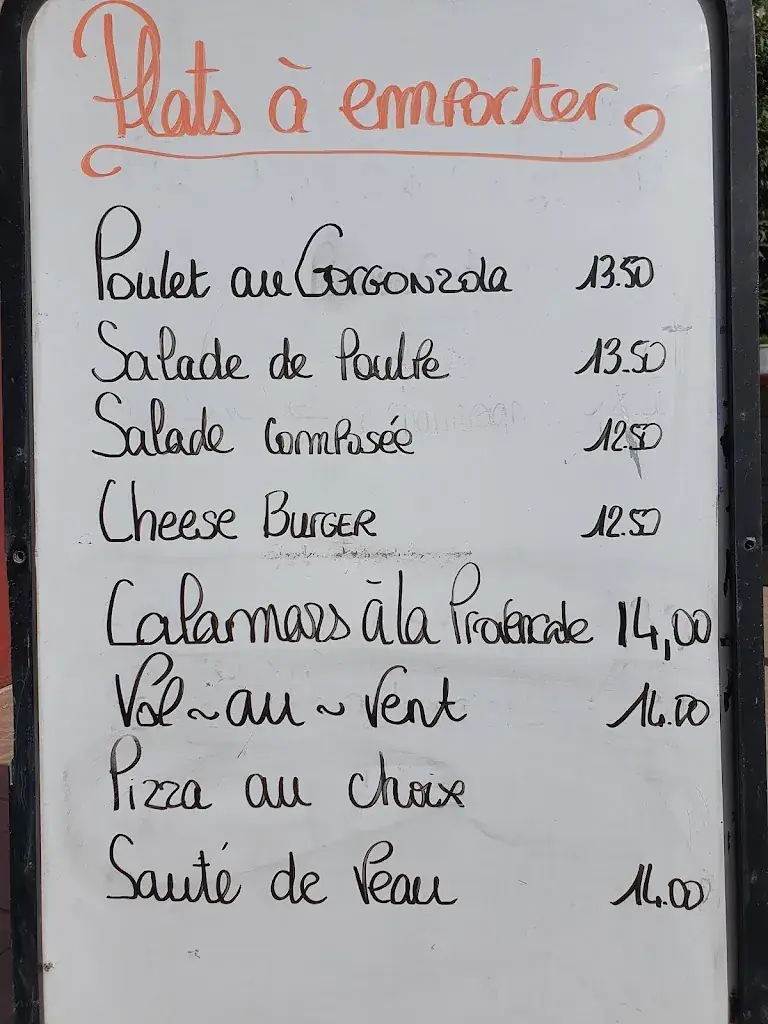 Plats à emporter
Poulet au Gorgonzola 13.50
Salade de Poulpe 13.50
Salade composée 12.50
Cheese Burger 12.50
Calamars à la Provencale 14,00
Vol~au~vent 14.00
Pizza au choix
Sauté de Veau 14.00